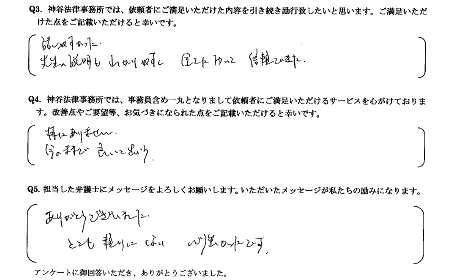 Q3. 神谷法律事務所では、依頼者にご満足いただけた内容を引き続き励行致したいと思います。ご満足いただ
けた点をご記載いただけると幸いです。
話しやすかった。
先生の説明も わかりやすく 全てにおいて 信頼できました。
Q4. 神谷法律事務所では、事務員含め一丸となりまして依頼者にご満足いただけるサービスを心がけておりま
す。改善点やご要望等、お気づきになられた点をご記載いただけると幸いです。
特にありません。
今のままで 良いと思う。
Q5. 担当した弁護士にメッセージをよろしくお願いします。いただいたメッセージが私たちの励みになります。
ありがとうございました。
とても 頼りになり 心強かったです。
アンケートに御回答いただき、ありがとうございました。